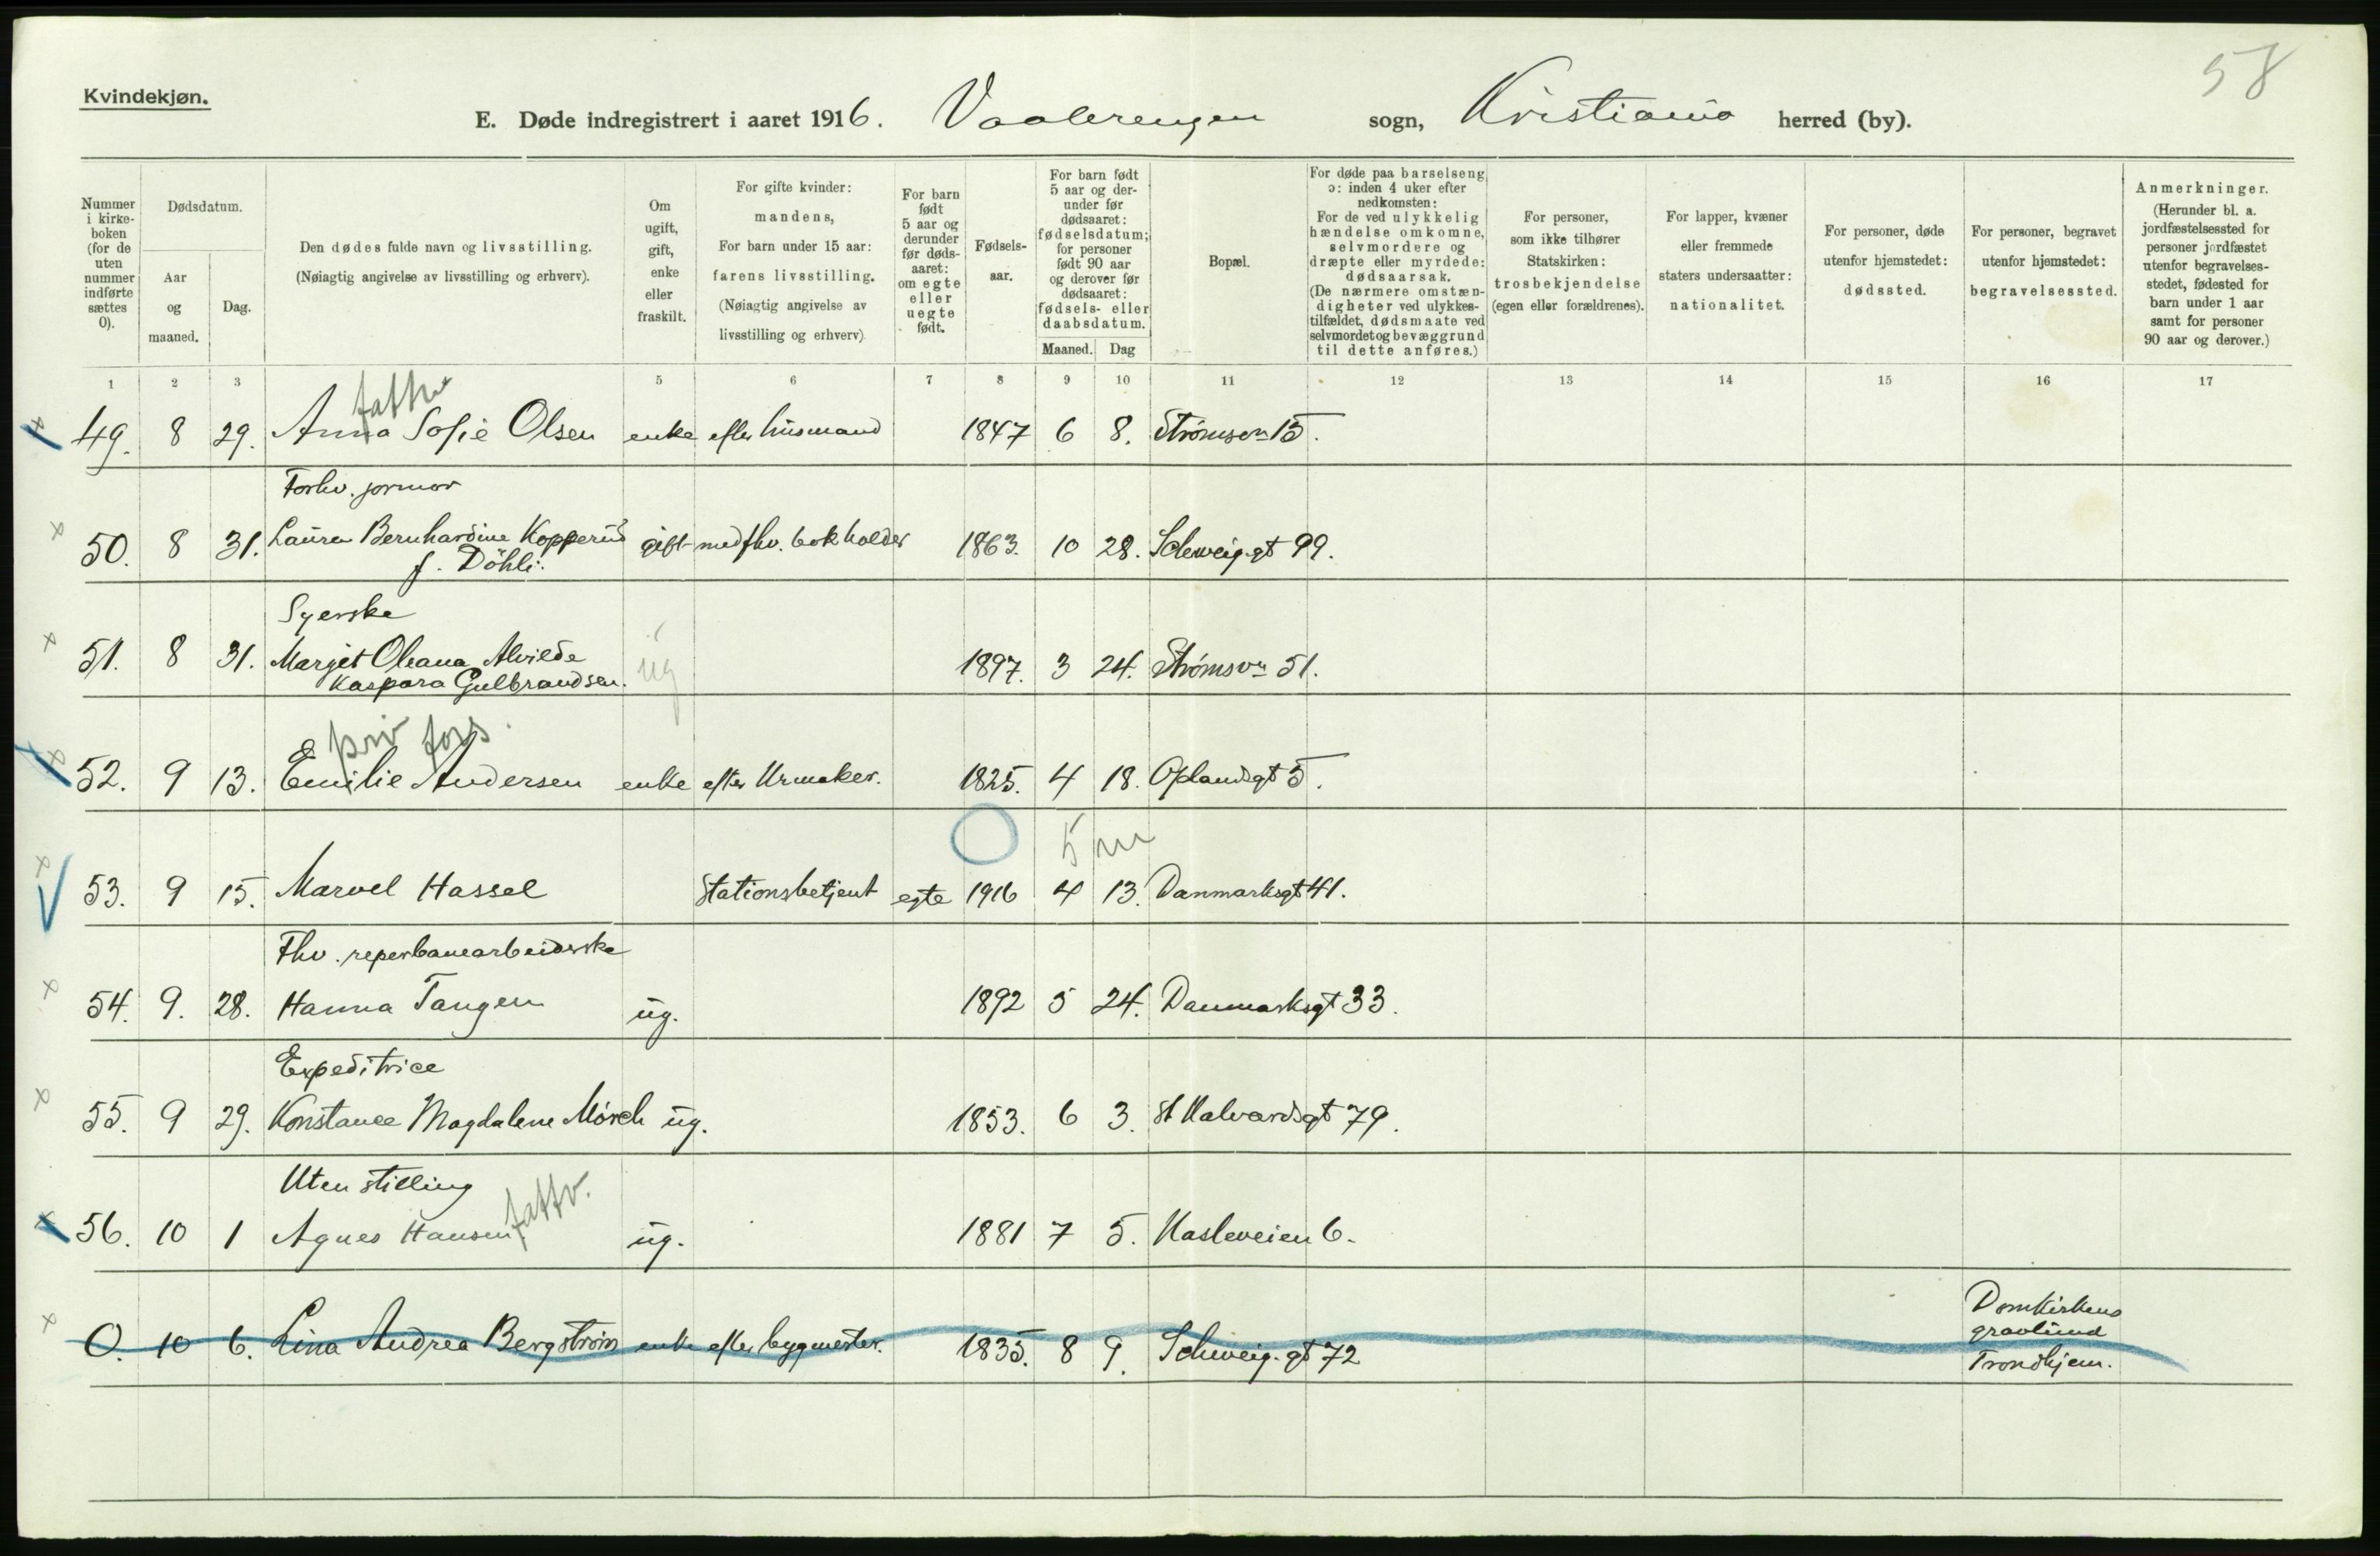 58
Kvindekjøn.
E. Døde indregistrert i aaret 1916. Vaalerengen sogn, Kristiania herred (by).
Nummer i kirke- boken (for de uten nummer indførte sættes 0).
Dødsdatum.
Aar og maaned.
Dag.
Den dødes fulde navn og livsstilling.
(Nøiagtig angivelse av livsstilling og erhverv).
Om ugift, gift, enke eller fraskilt.
For gifte kvinder: mandens,
For barn under 15 aar: farens livsstilling.
(Nøiagtig angivelse av livsstilling og erhverv)
For barn født 5 aar og derunder før døds- aaret: om egte eller uegte født.
Fødsels- aar.
For barn født 5 aar og der- under før dødsaaret: fødselsdatum; for personer født 90 aar og derover før dødsaaret: fødsels- eller daabsdatum.
Maaned. Dag
Bopæl.
For døde paa barselseng ɔ: inden 4 uker efter nedkomsten:
For de ved ulykkelig hændelse omkomne, selvmordere og dræpte eller myrdede: dødsaarsak.
(De nærmere omstæn- digheter ved ulykkes- tilfældet, dødsmaate ved selvmordet og bevæggrund til dette anføres.)
For personer, som ikke tilhører Statskirken: trosbekjendelse (egen eller forældrenes).
For lapper, kvæner eller fremmede staters undersaatter: nationalitet.
For personer, døde utenfor hjemstedet: dødssted.
For personer, begravet utenfor hjemstedet: begravelsessted.
Anmerkninger.
(Herunder bl. a. jordfæstelsessted for personer jordfæstet utenfor begravelses- stedet, fødested for barn under 1 aar samt for personer 90 aar og derover.)
1 2 3 5 6 7 8 9 10 11 12 13 14 15 16 17
fattv
49. 8 29. Anna Sofie Olsen enke efter husmand 1847 6 8. Strømsvn 15.
Forhv. jormor
50. 8 31. Laura Bernhardine Kopperud gift med fhv. bokholder 1863. 10 28. Schweig.gt 99.
f. Döhli.
Syerske
51. 8 31. Margit Oleana Alvilde ug 1897. 3 24. Strømsvn 51.
Kaspara Gulbrandsen.
priv fors.
52. 9 13. Emilie Andersen enke efter Urmaker. 1825. 4 18. Oplandsgt 5.
5 m
53. 9 15. Marvel Hassel Stationsbetjent egte 1916 4 13. Danmarksgt 41.
Fhv. reperbanearbeiderske
54. 9. 28. Hanna Tangen ug. 1892 5 24. Danmarksgt 33.
Expeditrice
55. 9 29. Konstance Magdalene Mørch ug. 1853. 6 3. St Halvardsgt 79.
Uten stilling
56. 10 1 Agnes Hansen fattv. ug. 1881 7 5. Hasleveien 6.
0. 10 6. Lina Andrea Bergstrøm enke efter bygmester. 1835. 8 9. Schweig.gt 72
Domkirkens
gravlund
Trondhjem.